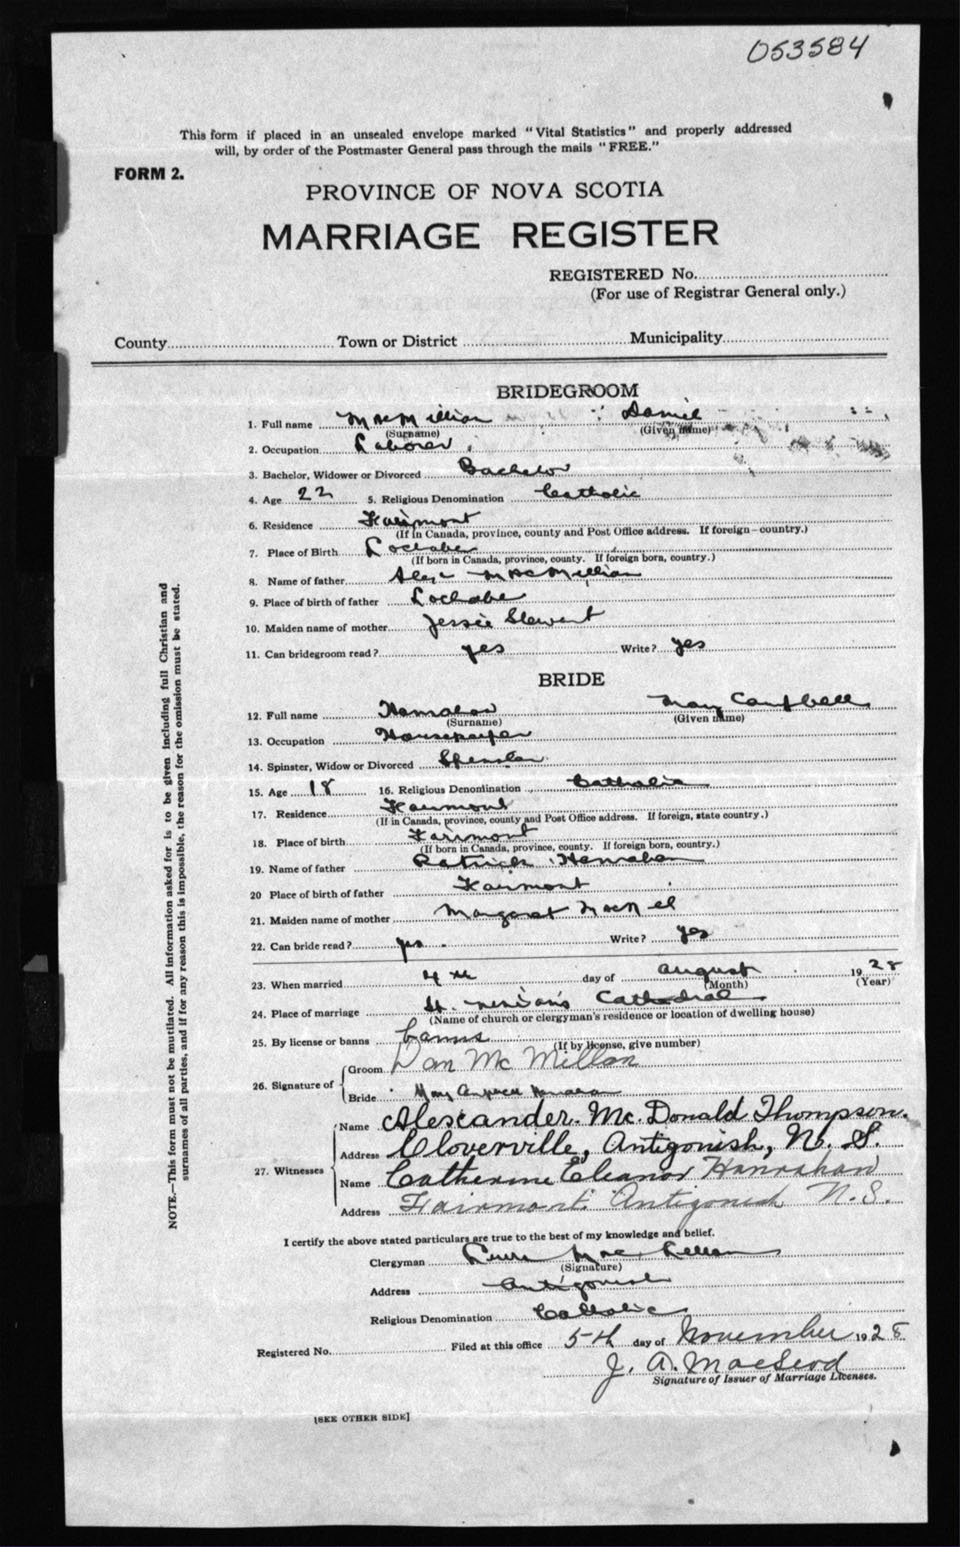 053584
This form if placed in an unsealed envelope marked "Vital Statistics" and properly addressed
will, by order of the Postmaster General pass through the mails "FREE."
FORM 2.
PROVINCE OF NOVA SCOTIA
MARRIAGE REGISTER
REGISTERED No.
(For use of Registrar General only.)
County Town or District Municipality
BRIDEGROOM
1. Full name MacMillian Daniel
(Surname) (Given name)
2. Occupation Laborer
3. Bachelor, Widower or Divorced Bachelor
4. Age 22 5. Religious Denomination Catholic
6. Residence Fairmont
(If in Canada, province, county and Post Office address. If foreign—country.)
7. Place of Birth Lochaber
(If born in Canada, province, county. If foreign born, country.)
8. Name of father Alex MacMillian
9. Place of birth of father Lochaber
10. Maiden name of mother Jessie Stewart
11. Can bridegroom read? yes Write? yes
BRIDE
12. Full name Hanrahan Mary Campbell
(Surname) (Given name)
13. Occupation Housekeeper
14. Spinster, Widow or Divorced Spinster
15. Age 18 16. Religious Denomination Catholic
17. Residence Fairmont
(If in Canada, province, county and Post Office address. If foreign, state country.)
18. Place of birth Fairmont
(If born in Canada, province, county. If foreign born, country.)
19. Name of father Patrick Hanrahan
20 Place of birth of father Fairmont
21. Maiden name of mother Margaret MacNeil
22. Can bride read? yes Write? yes
23. When married 4th day of August 1928
(Month) (Year)
24. Place of marriage St. Ninian's Cathedral
(Name of church or clergyman's residence or location of dwelling house)
25. By license or banns banns
(If by license, give number)
26. Signature of Groom Dan Mc Millan
Bride May
27. Witnesses Name Alexander Mc. Donald Thompson.
Address Cloverville, Antigonish, N. S.
Name Catherine Eleanor Hanrahan
Address Fairmont Antigonish N.S.
I certify the above stated particulars are true to the best of my knowledge and belief.
Clergyman Mac Lellan
(Signature)
Address Antigonish
Religious Denomination Catholic
Registered No. Filed at this office 5th day of November 1928
J. A. MacLeod
Signature of Issuer of Marriage Licenses.
[SEE OTHER SIDE]
NOTE.—This form must not be mutilated. All information asked for is to be given including full Christian and
surnames of all parties, and if for any reason this is impossible, the reason for the omission must be stated.